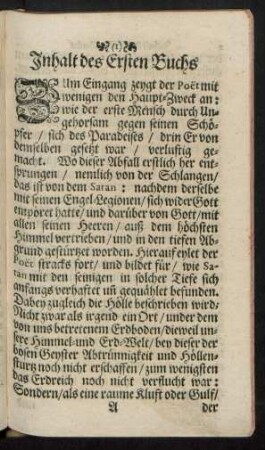 (1)
Inhalt des Ersten Buchs
ZUm Eingang zeygt der Poët mit
wenigen den Haupt-Zweck an:
wie der erste Mensch durch Un-
gehorsam gegen seinen Schö-
pfer / sich des Paradeises / drin Er von
demselben gesetzt war / verlustig ge-
macht. Wo dieser Abfall erstlich her ent-
sprungen / nemlich von der Schlangen /
das ist von dem Satan: nachdem derselbe
mit seinen Engel-Legionen / sich wider Gott
emporet hatte / und darüber von Gott / mit
allen seinen Heeren / auß dem höchsten
Himmel vertrieben / und in den tiefen Ab-
grund gestürtzet worden. Hierauf eylet der
Poët stracks fort / und bildet für / wie Sa-
tan mit den seinigen in solcher Tiefe sich
anfangs verhaftet uñ gequählet befunden.
Dabey zugleich die Hölle beschrieben wird /
Nicht zwar als irgend ein Ort / under dem
von uns betretenem Erdboden / dieweil un-
sere Himmel und Erd-Welt / bey dieser der
bösen Geyster Abtrünnigkeit und Höllen-
sturtz noch nicht erschaffen / zum wenigsten
das Erdreich noch nicht verflucht war:
Sondern / als eine raume Kluft oder Gulf /
A
der